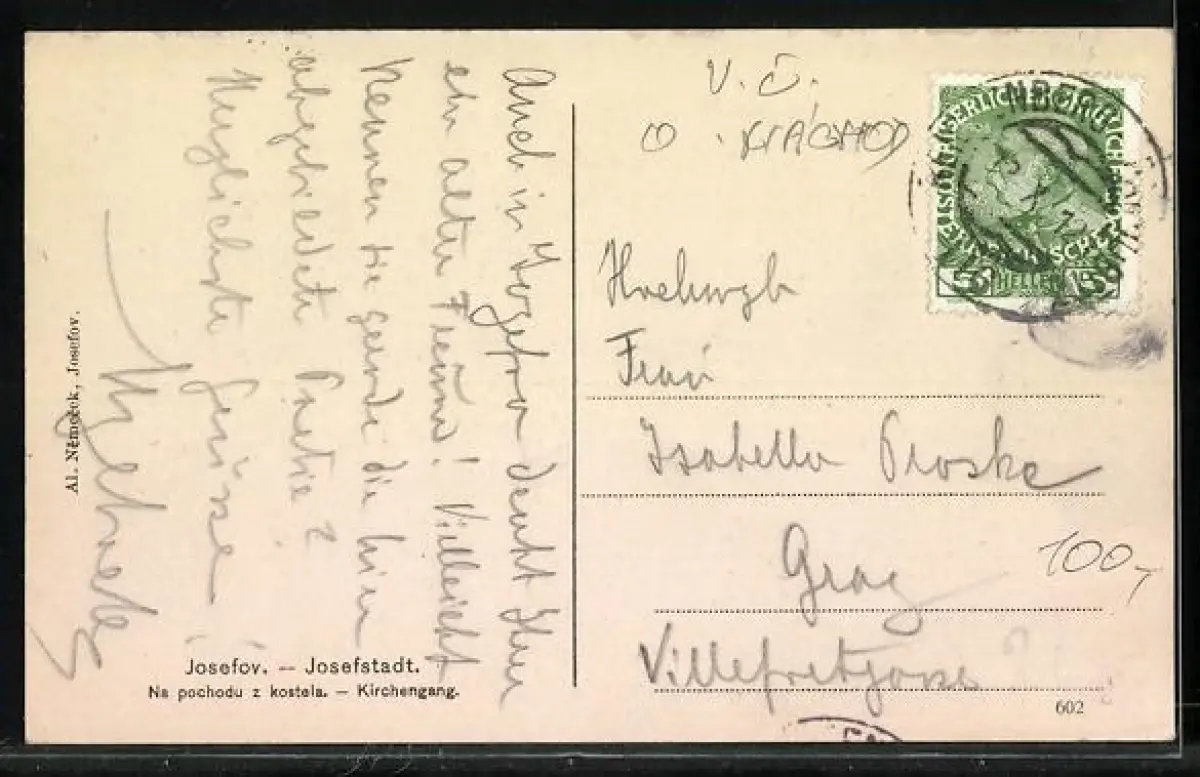 Auch in Josefov denkt Ihrer
ein alter Freund! Vielleicht
kennen Sie gerade die hier
abgebildete Partie?
Herzlichste Grüsse!
V. Č.
Hochwgb
Frau
Isabella Proske
Graz
100,-
Villefortgasse
KAISERLICHE KÖNIGLICHE ÖSTERREICHISCHE POST
5 HELLER 5
Al. Němeček, Josefov.
Josefov. — Josefstadt.
Na pochodu z kostela. — Kirchengang.
602